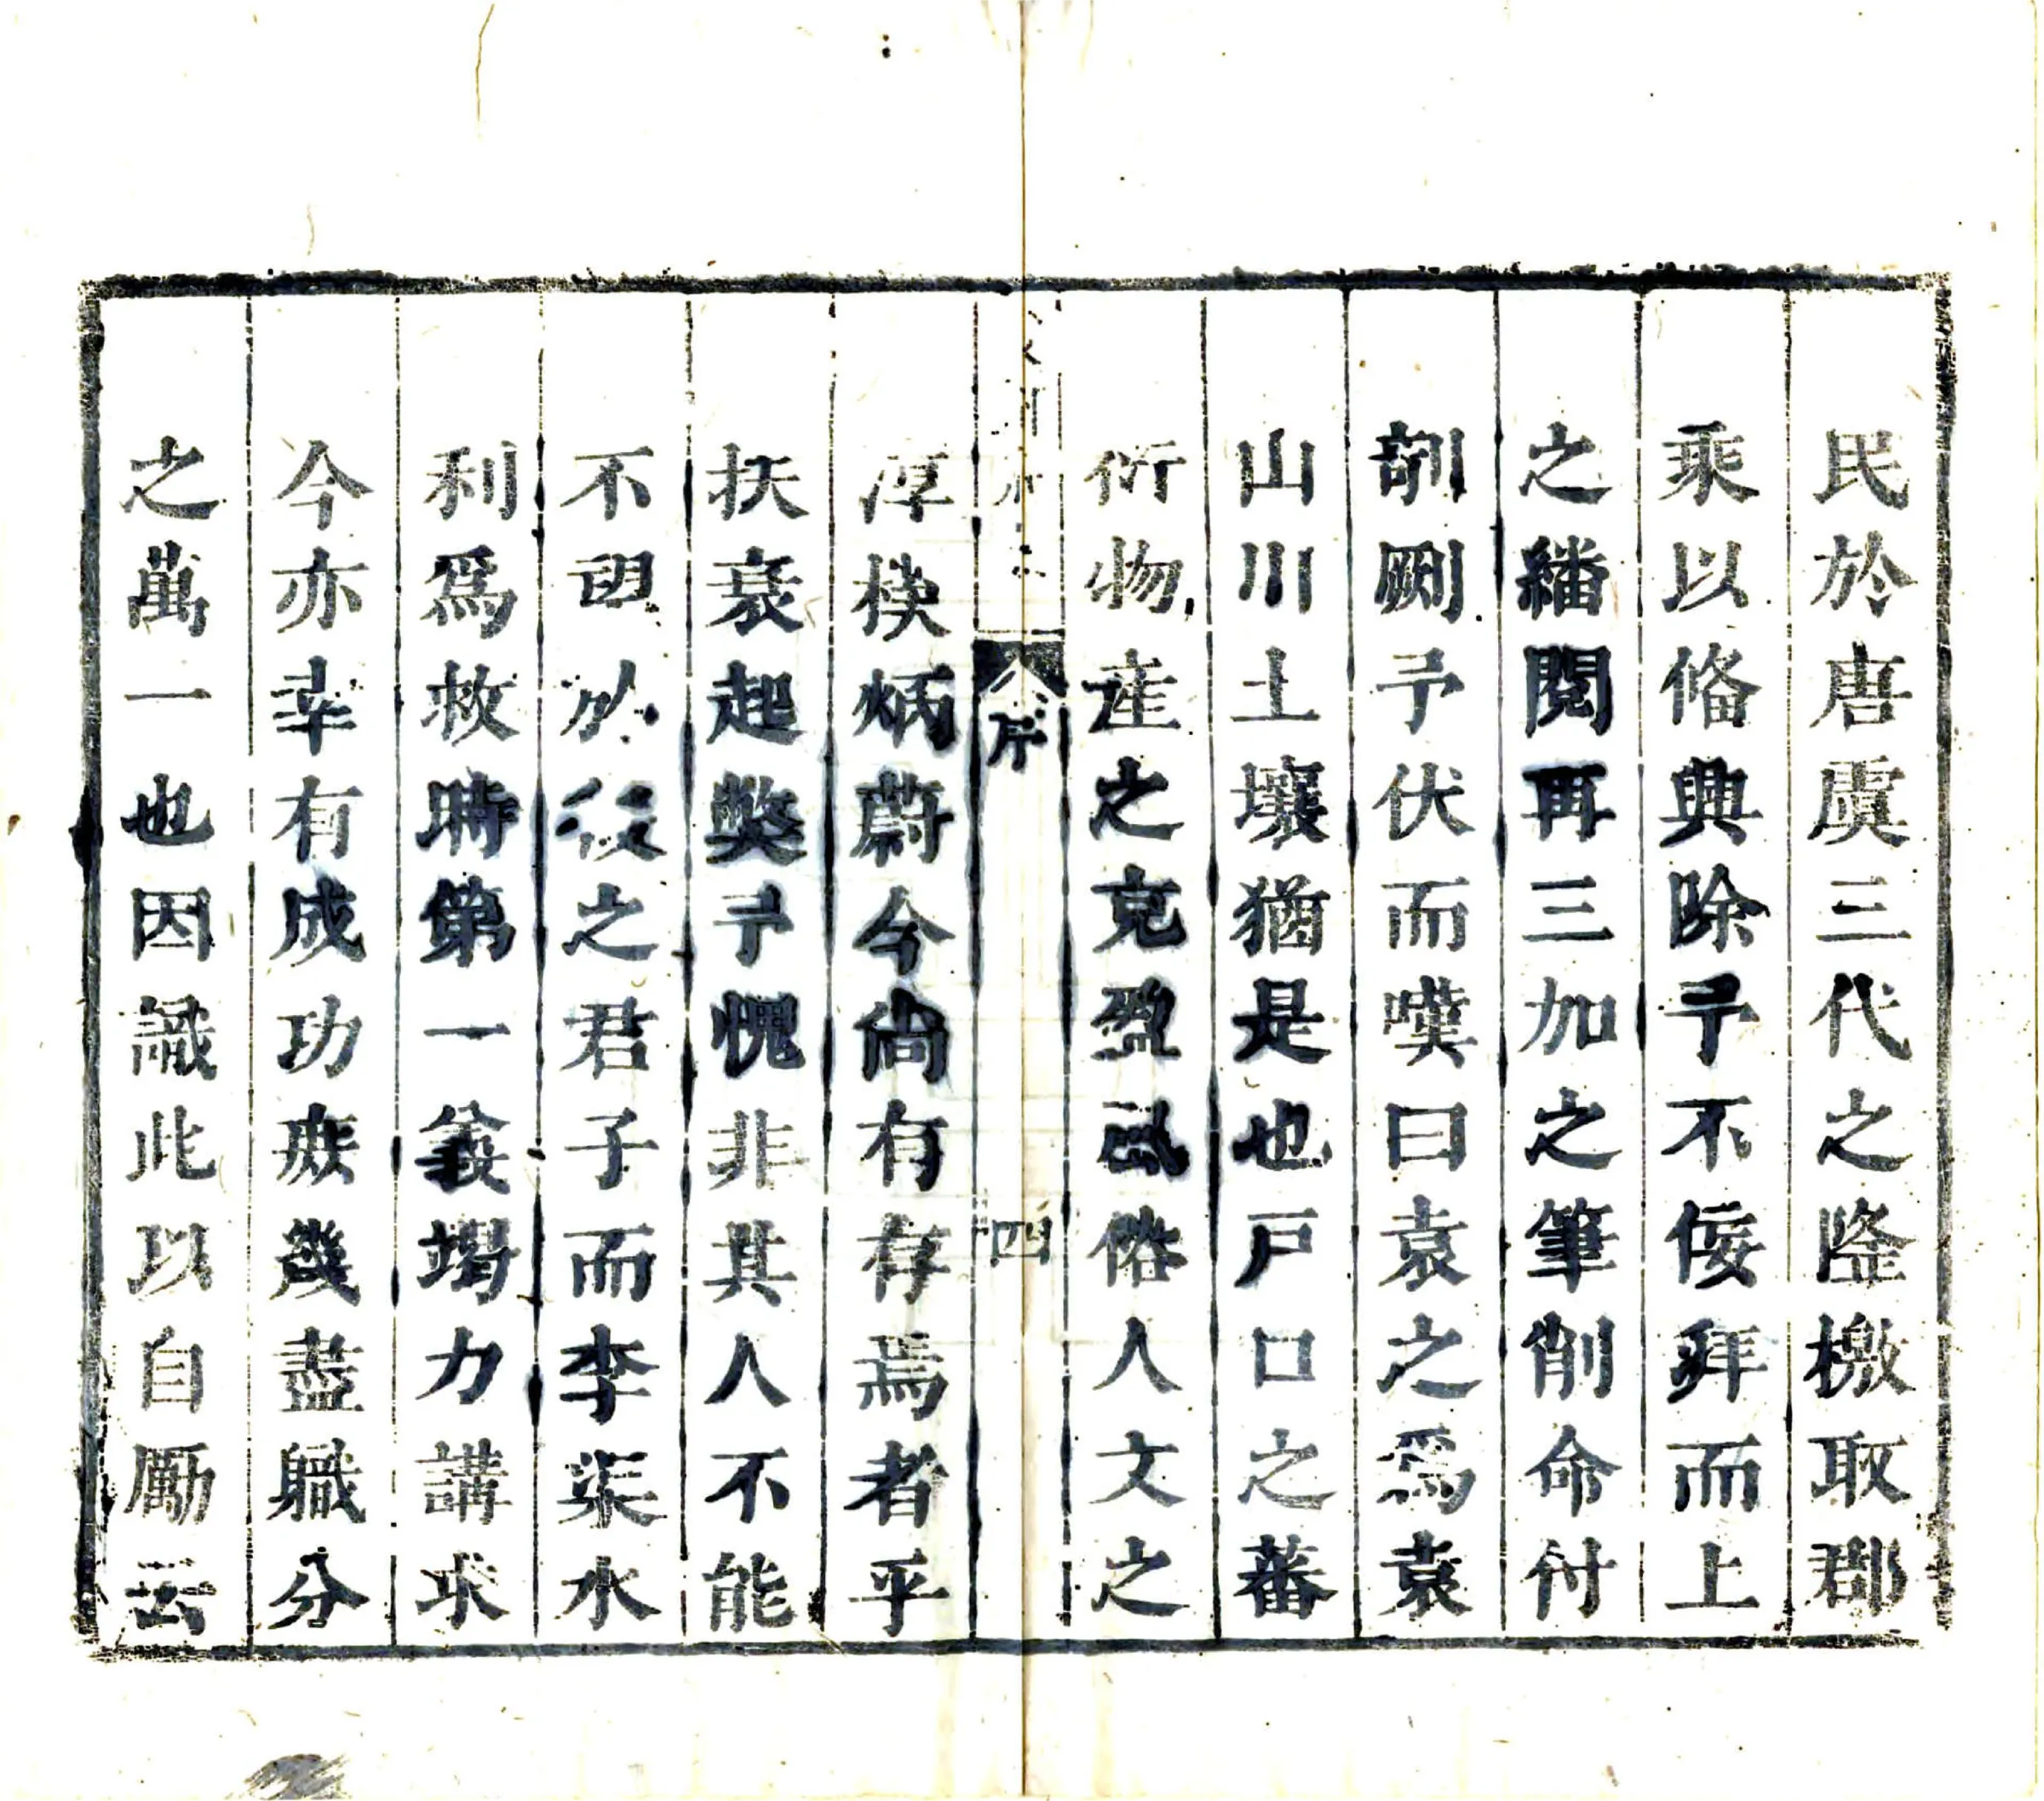 民於唐虞三代之隆檄取郡
乘以俻典除予不佞拜而上
之繙閱再三加之筆削命付
剞劂予伏而嘆曰袁之爲袁
山川土壤猶是也戸口之蕃
衍物產之克盈風俗人文之
序 四
淳樸炳蔚今尚有存焉者乎
扶衰起獘予愧非其人不能
不望於後之君子而李渠水
利爲救時第一義竭力講求
今亦幸有成功庶幾盡職分
之萬一也因識此以自勵云